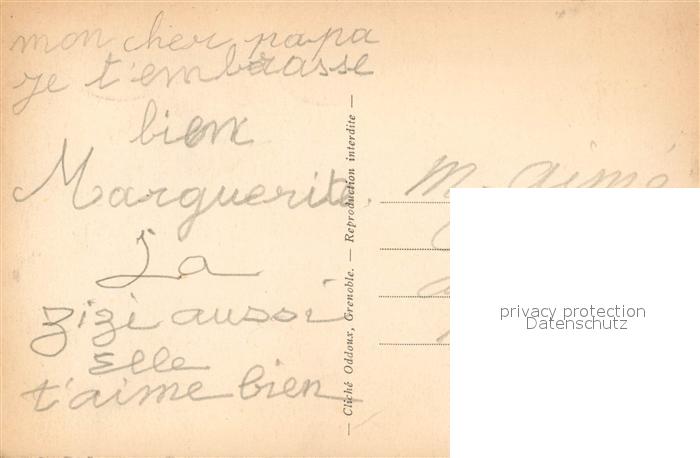 mon cher papa
je t'embrasse
bien
Marguerite.
La
zizi aussi
Elle
t'aime bien
— Cliché Oddoux, Grenoble. — Reproduction interdite —
M. Aimé
privacy protection
Datenschutz